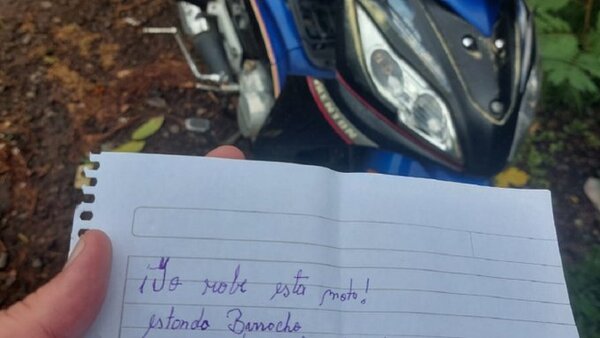 ¡Yo robe esta moto!
estando Borracho